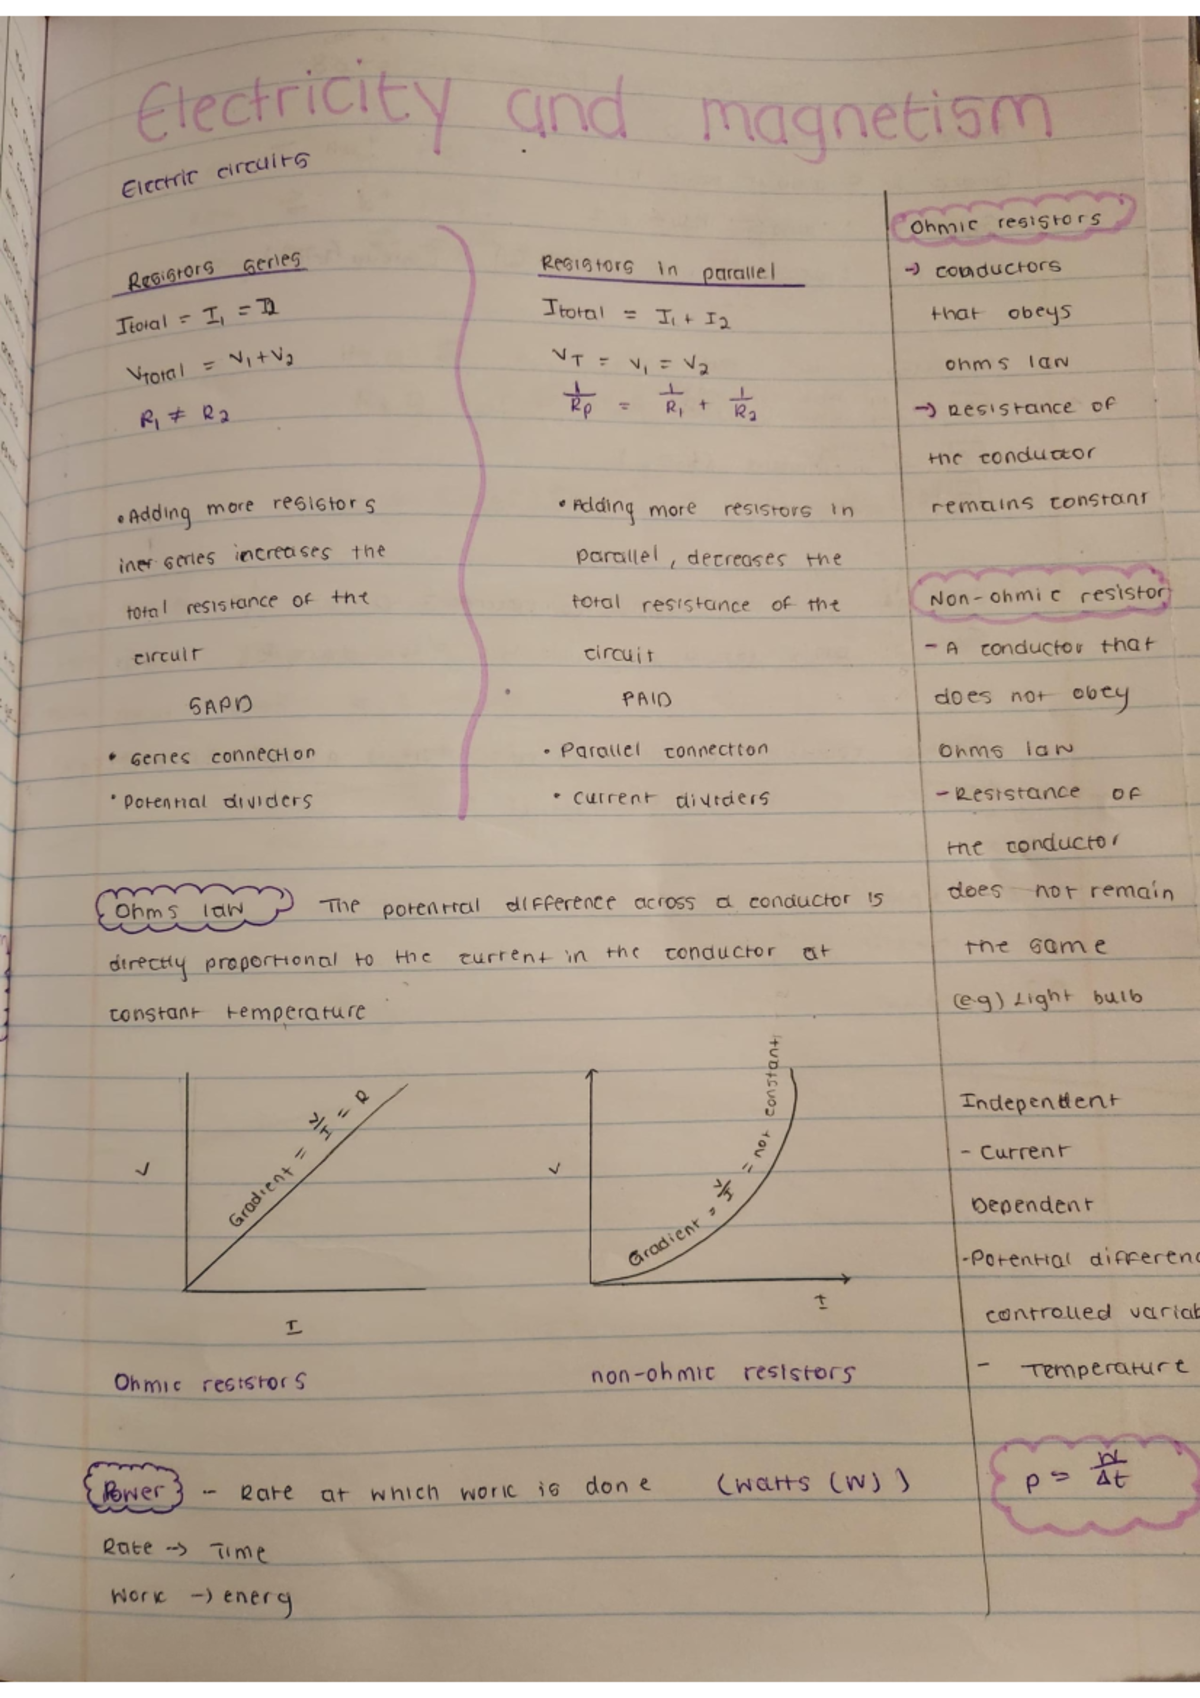 Electricity and magnetism
Electric circuits
Resistors series
Itotal = I₁ = I2
VTotal = V₁ + V₂
R₁ ≠ R₂
• Adding more resistors
iner series increases the
total resistance of the
circuit
SAPD
• series connection
• Potential dividers
Resistors in parallel
Itotal = I₁ + I₂
VT = V₁ = V₂
1/Rp = 1/R₁ + 1/R₂
• Adding more resistors in
parallel, decreases the
total resistance of the
circuit
PAID
• Parallel connection
• current dividers
Ohms law The potential difference across a conductor is
directly proportional to the current in the conductor at
constant temperature
V
Gradient = V/I = R
I
Ohmic resistors
V
Gradient = V/I = not constant
I
non-ohmic resistors
Power - Rate at which work is done (Watts (W))
Rate -> Time
Work -> energy
Ohmic resistors
-> conductors
that obeys
ohms law
-> Resistance of
the conductor
remains constant
Non-ohmic resistor
- A conductor that
does not obey
ohms law
- Resistance of
the conductor
does not remain
the same
(e.g) Light bulb
Independent
- Current
Dependent
- Potential differenc
controlled variab
- Temperature
P = W/Δt